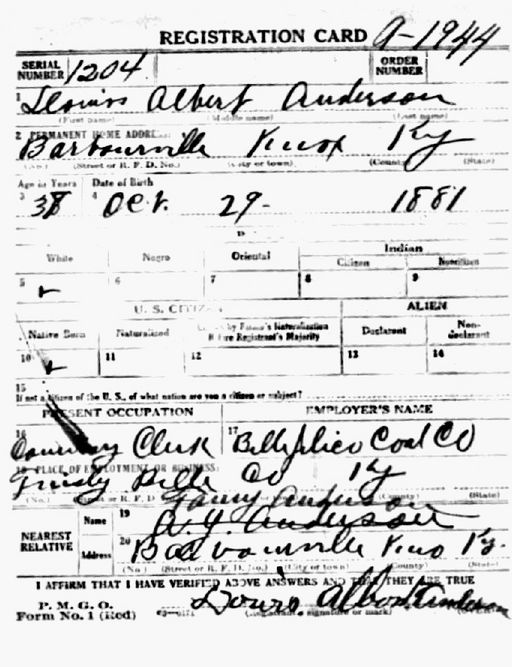 REGISTRATION CARD A-1944
SERIAL NUMBER 1204 ORDER NUMBER
1 Albert Anderson
(First name) (Middle name) (Last name)
2 PERMANENT HOME ADDRESS:
Barbourville Knox Ky
(No.) (Street or R. F. D. No.) (City or town) (County) (State)
Age in Years Date of Birth
3 38 4 Oct. 29- 1881
White Negro Oriental Indian
Citizen Noncitizen
5 ✓ 6 7 8 9
U. S. CITIZEN ALIEN
Native Born Naturalized Citizen by Father's Naturalization Before Registrant's Majority Declarant Non-declarant
10 ✓ 11 12 13 14
15
If not a citizen of the U. S., of what nation are you a citizen or subject?
PRESENT OCCUPATION EMPLOYER'S NAME
16 Clerk 17 Coal Co
18 PLACE OF EMPLOYMENT OR BUSINESS:
Co Ky
(No.) (Street or R. F. D (County) (State)
Anderson
NEAREST RELATIVE Name 19 Anderson
Address 20 Barbourville Knox Ky.
(No.) (Street or R. F. D. No.) (City or town) (County) (State)
I AFFIRM THAT I HAVE VERIFIED ABOVE ANSWERS AND THAT THEY ARE TRUE
P. M. G. O.
Form No. 1 (Red) Anderson
(Registrant's signature or mark)